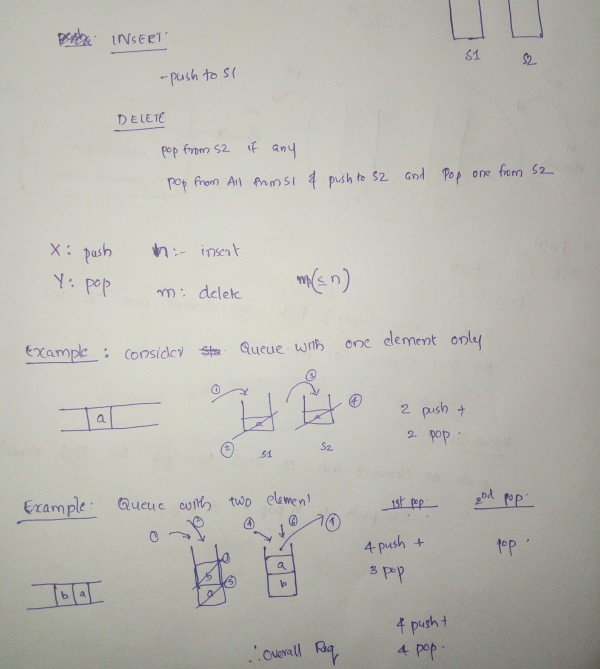 INSERT:
S1 S2
-push to S1
DELETE
pop from S2 if any
pop from All from S1 & push to S2 and Pop one from S2
X: push n:- insert
Y: pop m: delete m(≤n)
Example: consider Queue with one element only
① ③
a a a ④ 2 push +
② S1 S2 2 pop.
Example: Queue with two element 1st pop 2nd pop.
① ② ④ ⑥
b a 4 push + pop.
b a a b 3 pop
∴ Overall Req 4 push +
4 pop.